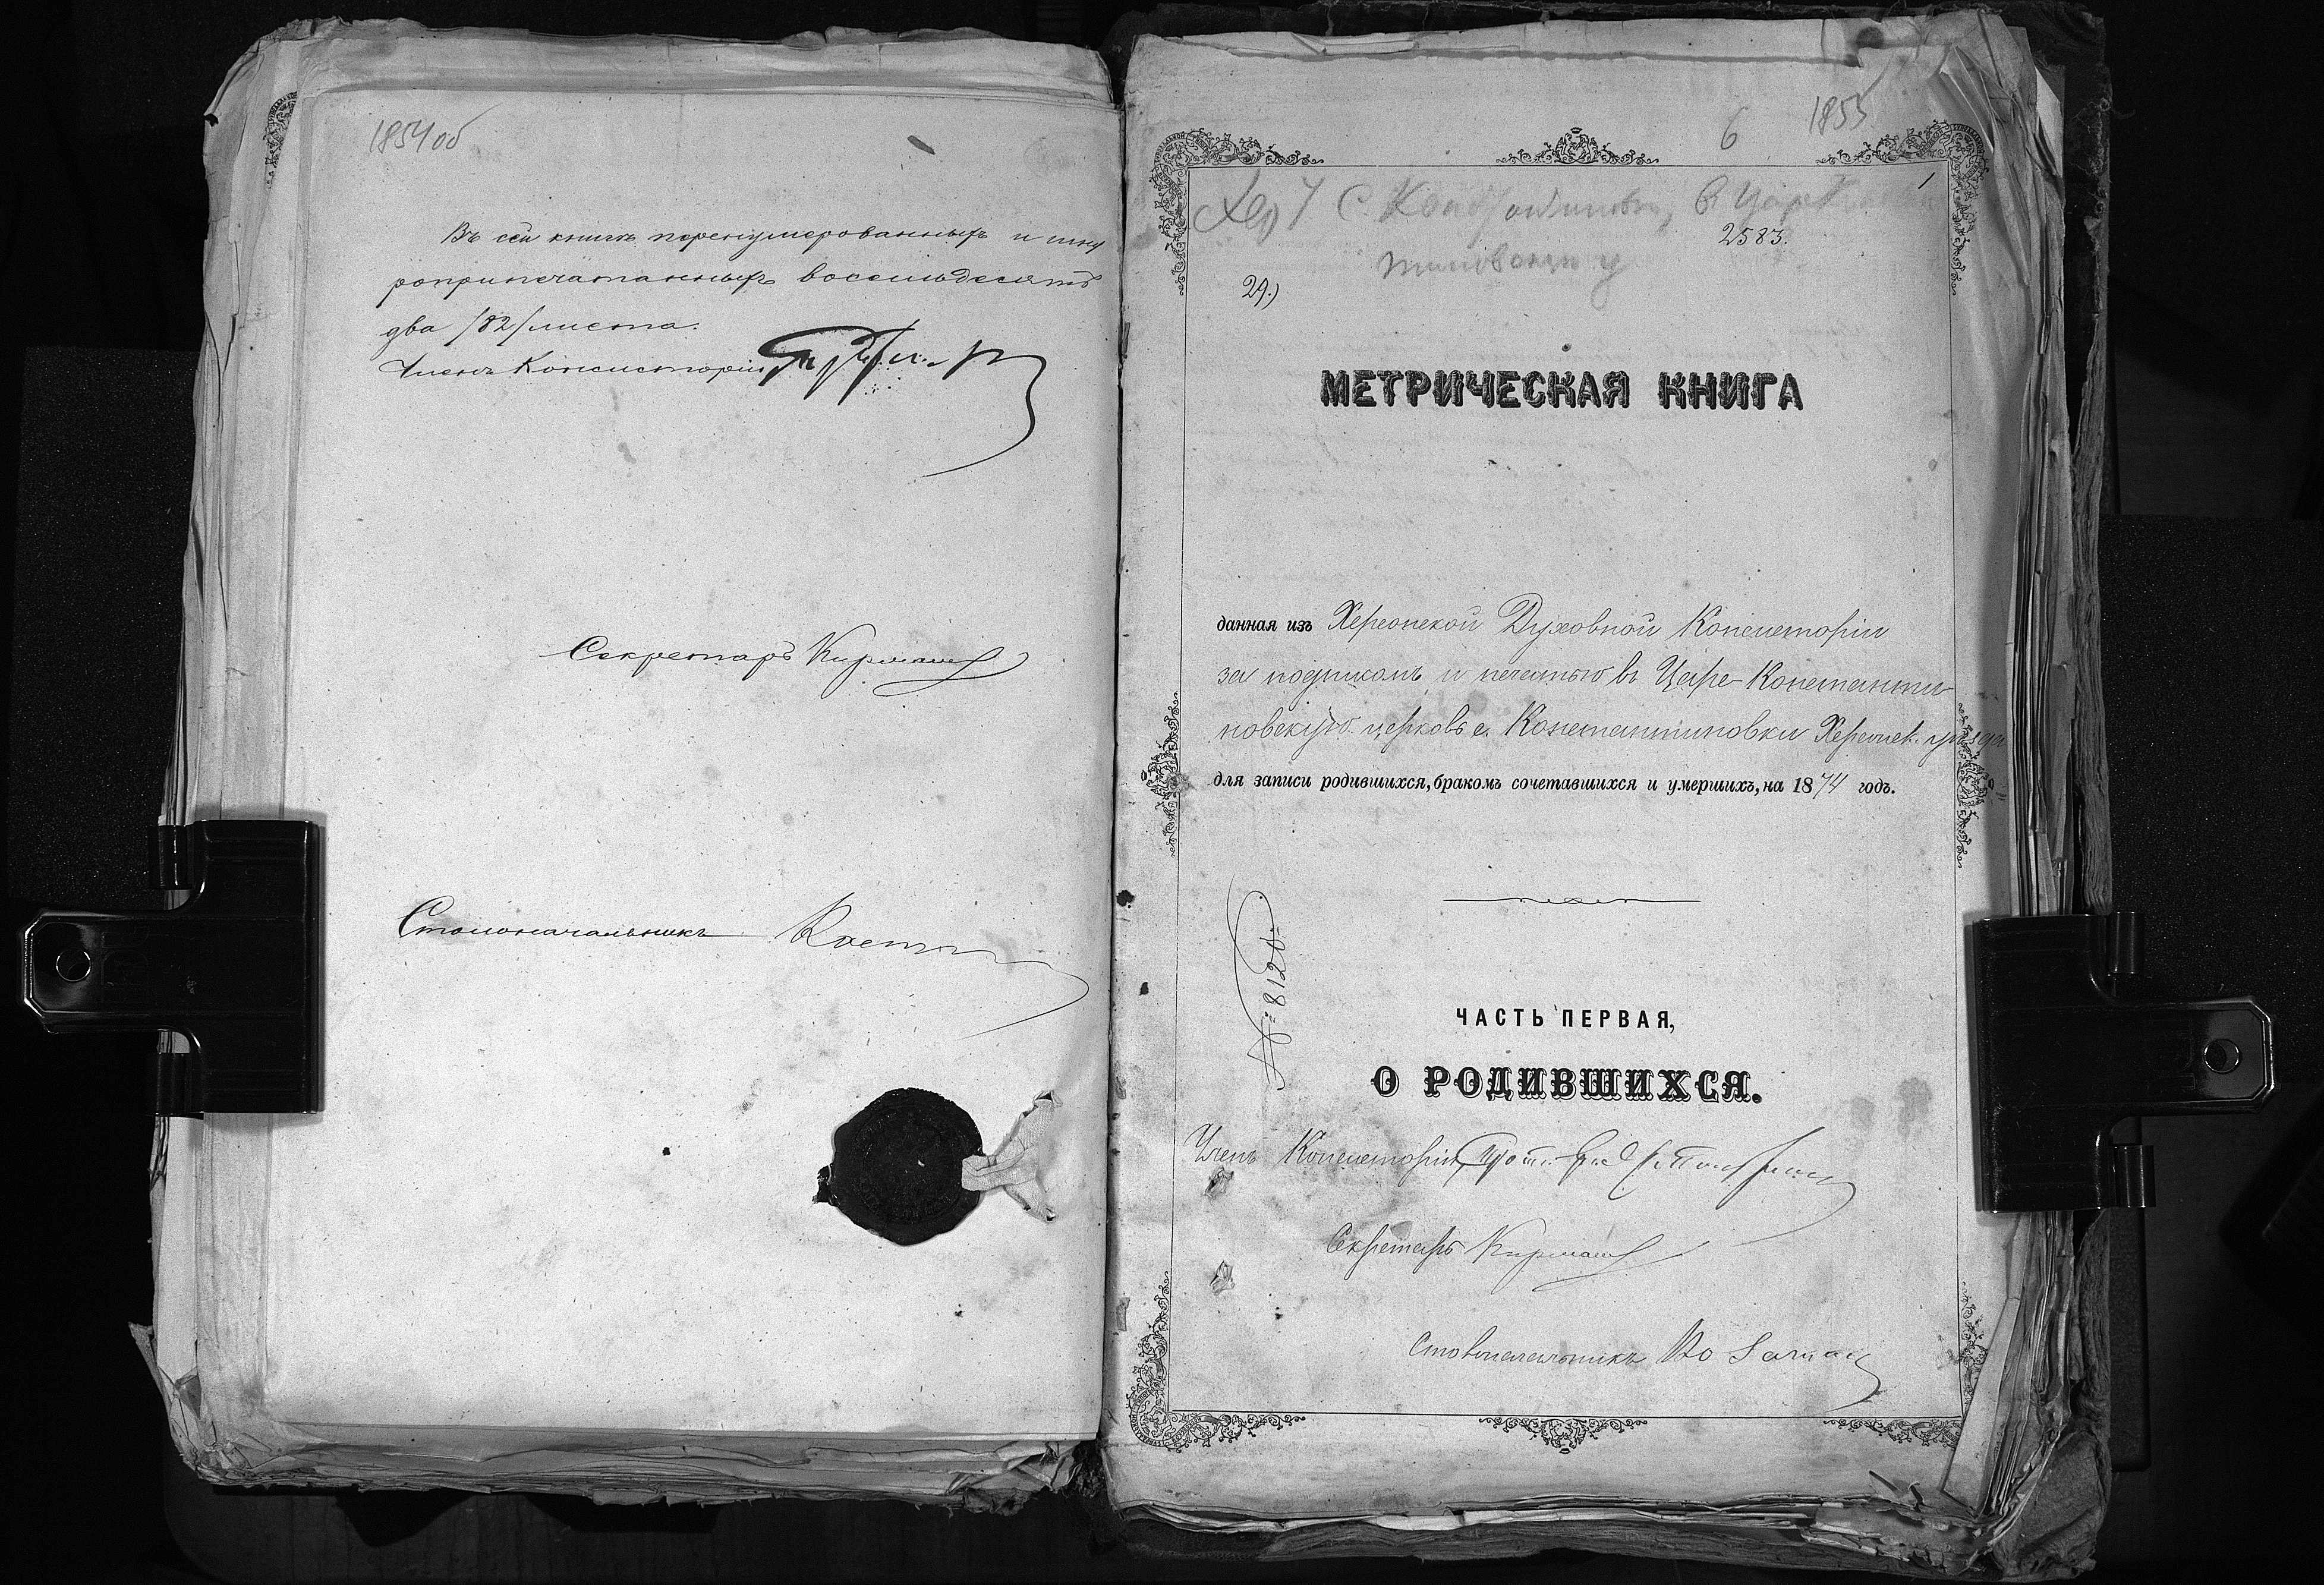 1854об
Въ сей книгѣ перенумерованныхъ и шну
роприпечатанныхъ восемьдесятъ
два /82/ листа.
Членъ Консисторіи
Секретарь
Столоначальникъ
1855
6
1
Хер у с. Константиновка, в Царе
2583.
тиновскую
29.)
МЕТРИЧЕСКАЯ КНИГА
данная изъ Херсонской Духовной Консисторіи
за подписомъ и печатью въ Царе-Константи
новскую церковь с. Константиновки Херсонск. уѣзда
для записи родившихся, бракомъ сочетавшихся и умершихъ, на 1874 годъ.
№ 8128.
ЧАСТЬ ПЕРВАЯ,
О РОДИВШИХСЯ.
Членъ Консисторіи
Секретарь
Столоначальникъ